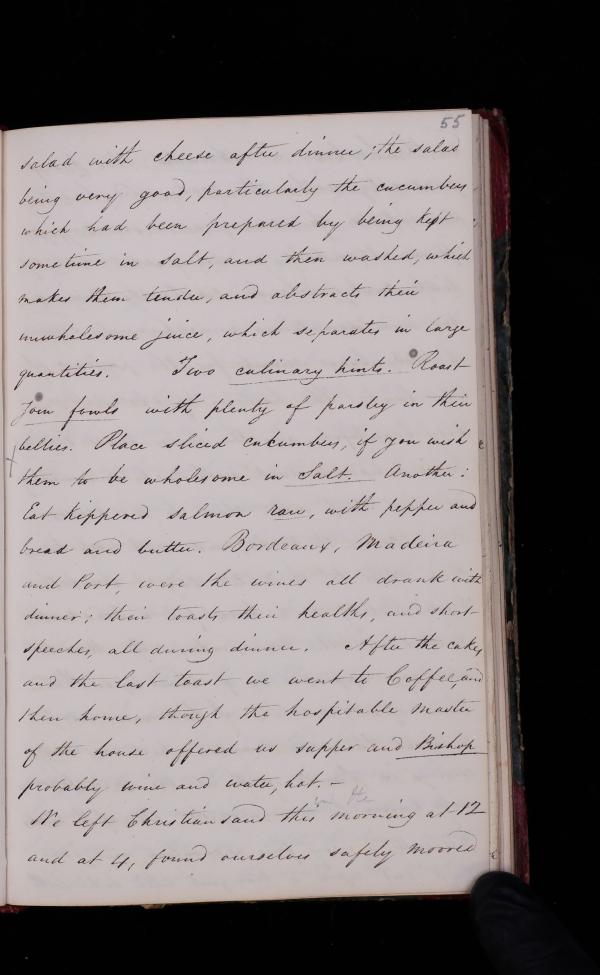 55
salad with cheese after dinner; the salad
being very good, particularly the cucumbers
which had been prepared by being kept
sometime in salt, and then washed, which
makes them tender, and abstracts their
unwholesome juice, which separates in large
quantities. Two culinary hints. Roast
fowls with plenty of parsley in their
bellies. Place sliced cucumbers, if you wish
them to be wholesome in Salt. Another:
Eat Kippered salmon raw, with pepper and
bread and butter. Bordeaux, Madeira
and Port, were the wines all drank with
dinner; their toasts their healths, and short
speeches, all during dinner. After the cakes
and the last toast we went to Coffee, and
then home, though the hospitable master
of the house offered us supper and Bishop
probably wine and water, hot. –
on the
We left Christiansand this morning at 12
and at 4, found ourselves safely moored